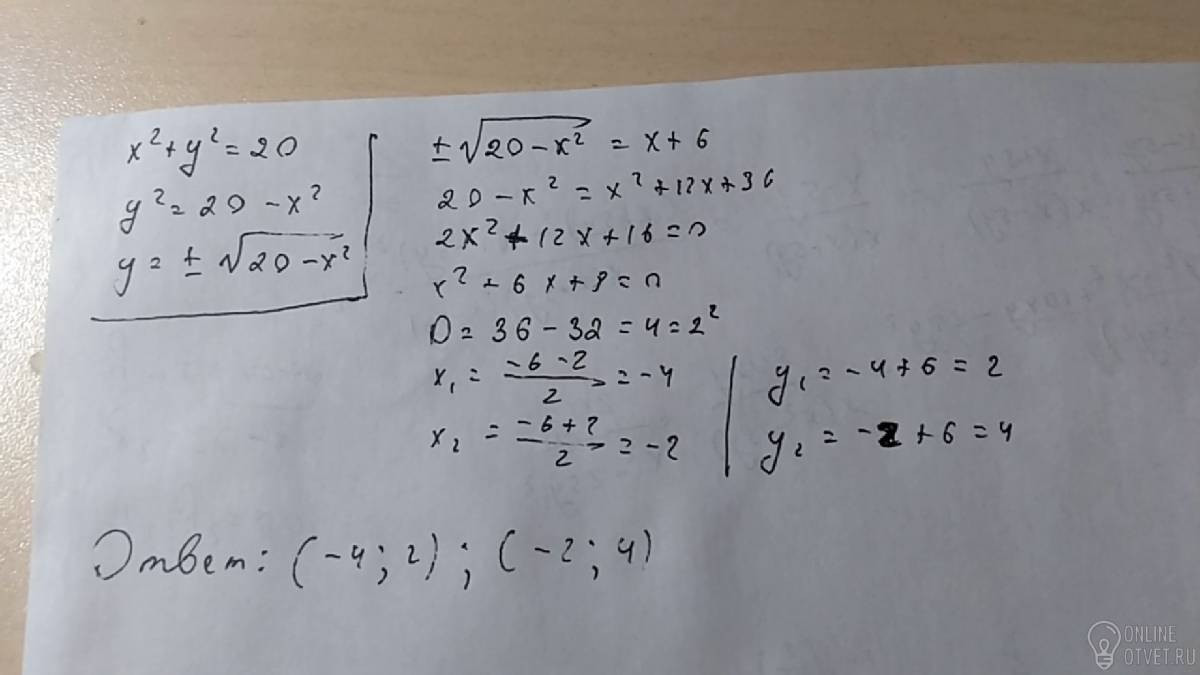 x² + y² = 20
y² = 20 - x²
y = ± √20 - x²
± √20 - x² = x + 6
20 - x² = x² + 12x + 36
2x² + 12x + 16 = 0
x² + 6x + 8 = 0
D = 36 - 32 = 4 = 2²
x₁ = (-6 - 2)/2 = -4
x₂ = (-6 + 2)/2 = -2
y₁ = -4 + 6 = 2
y₂ = -2 + 6 = 4
Ответ: (-4; 2); (-2; 4)
ONLINE
OTVET.RU